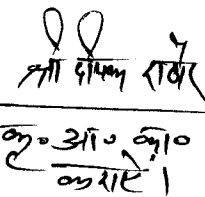 श्री दीपक राठौर
कृ० आ० का०
कराएं।